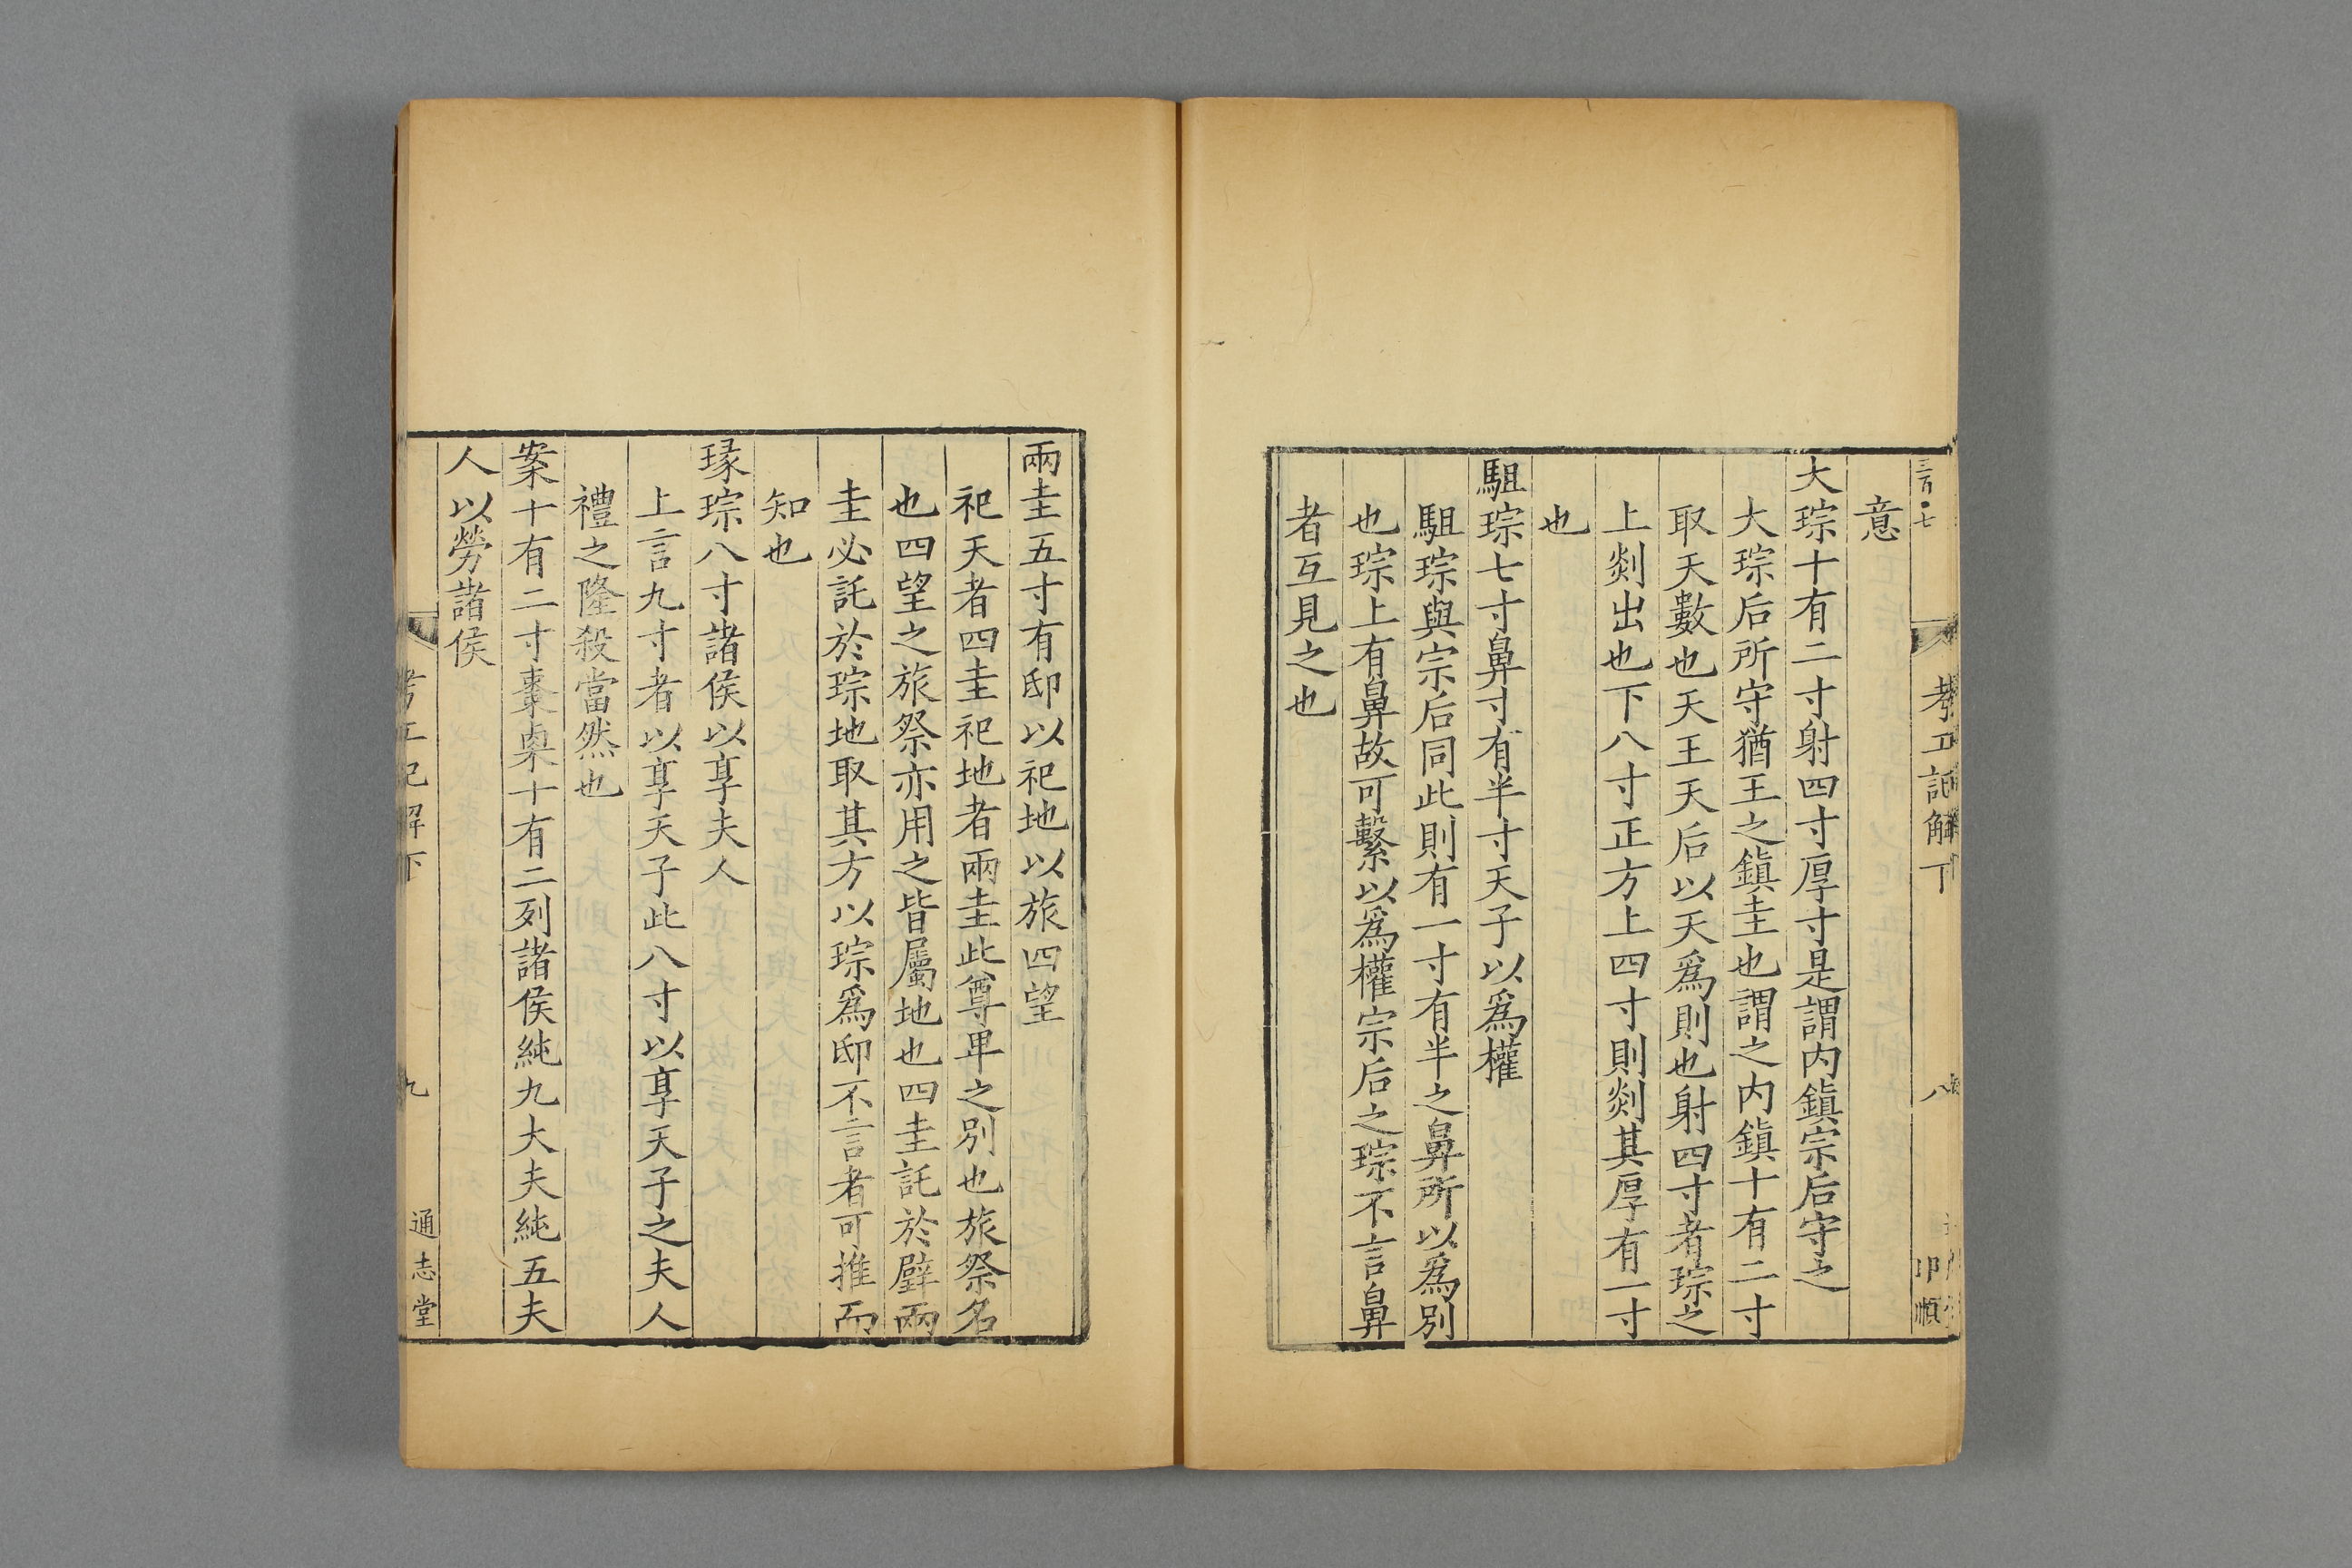 意
大琮十有二寸射四寸厚寸是謂内鎮宗后守之
大琮后所守猶王之鎮圭也謂之内鎮十有二寸
取天數也天王天后以天爲則也射四寸者琮之
上剡出也下八寸正方上四寸則剡其厚有一寸
也
駔琮七寸鼻寸有半寸天子以爲權
駔琮與宗后同此則有一寸有半之鼻所以爲別
也琮上有鼻故可繫以爲權宗后之琮不言鼻
者互見之也
考工記解下
八
兩圭五寸有邸以祀地以旅四望
祀天者四圭祀地者兩圭此尊卑之別也旅祭名
也四望之旅祭亦用之皆屬地也四圭託於璧兩
圭必託於琮地取其方以琮爲邸不言者可推而
知也
瑑琮八寸諸侯以享夫人
上言九寸者以享天子此八寸以享天子之夫人
禮之隆殺當然也
案十有二寸棗㮚十有二列諸侯純九大夫純五夫
人以勞諸侯
考工記解下
九
通志堂